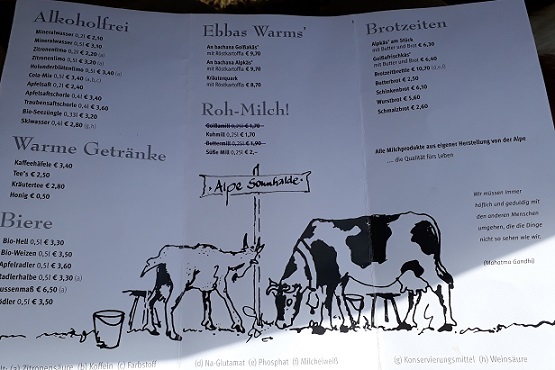 Alkoholfrei
Mineralwasser 0,2l € 2,10
Mineralwasser 0,5l € 3,10
Zitronenlimo 0,2l € 2,20 (a)
Zitronenlimo 0,5l € 3,20 (a)
Holunderblütenlimo 0,5l € 3,40 (a)
Cola-Mix 0,5l € 3,40
Apfelsaft 0,2l € 2,40
Apfelsaftschorle 0,4l € 3,40
Traubensaftschorle 0,4l € 3,60
Bio-Seezüngle 0,33l € 3,20
Skiwasser 0,4l € 2,80 (g,h)
Warme Getränke
Kaffeehäfele € 3,40
Tee's € 2,50
Kräutertee € 2,80
Honig € 0,50
Biere
Bio-Hell 0,5l € 3,30
Bio-Weizen 0,5l € 3,50
Apfelradler 0,5l € 3,60
Radlerhalbe 0,5l € 3,30 (a)
ussenmaß € 6,50 (a)
ödler 0,5l € 3,50
(a) Zitronensäure (b) Koffein (c) Farbstoff
Ebbas Warms'
An bachana Goißakäs'
mit Röstkartoffla € 9,70
An bachana Alpkäs'
mit Röstkartoffla € 9,70
Kräutenpark
mit Röstkartoffla € 8,70
Roh-Milch!
Goißamill 0,25l € 1,70
Kuhmill 0,25l € 1,70
Buttermill 0,25l € 1,90
Süße Mill 0,25l € 2,-
Alpe Sonnhalde
(d) Na-Glutamat (e) Phosphat (f) Milcheiweiß
Brotzeiten
Alpkäs' am Stück
mit Butter und Brot € 6,30
Goißafrischkäs'
mit Butter und Brot € 6,40
Brotzeitbrettle € 10,70
Butterbrot € 2,50
Schinkenbrot € 6,30
Wurstbrot € 5,60
Schmalzbrot € 2,60
Alle Milchprodukte aus eigener Herstellung von der Alpe
.... die Qualität fürs Leben
Wir müssen immer
höflich und geduldig mit
den anderen Menschen
umgehen, die die Dinge
nicht so sehen wie wir.
(Mahatma Gandhi)
(g) Konservierungsmittel (h) Weinsäure